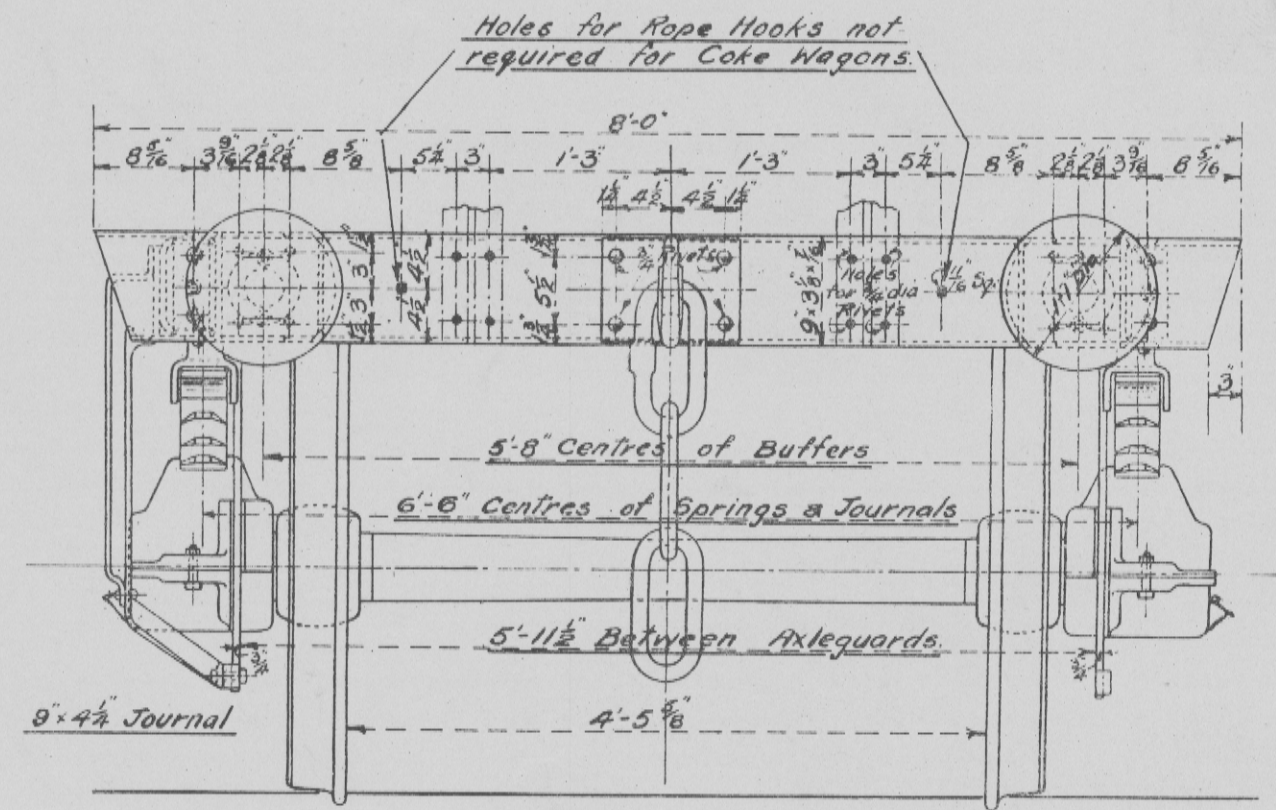 Holes for Rope Hooks not
required for Coke Wagons.
8'-0"
8 5/16" 3 9/16" 2 1/8" 2 1/8" 8 5/8" 5 1/4" 3" 1'-3" 1'-3" 3" 5 1/4" 8 5/8" 2 1/8" 2 1/8" 3 9/16" 8 5/16"
1 1/4" 4 1/2" 4 1/2" 1 1/4"
1 1/2" 3" 3" 1 1/2"
4 1/2" 4 1/2"
1 3/4" 5 1/2" 1 3/4"
3/4" Rivets
9" × 3 1/8" ×
Holes
for dia
Rivets
11/16" Sq.
1'-1" Dia
3"
5'-8" Centres of Buffers
6'-6" Centres of Springs & Journals
5'-11 1/2" Between Axleguards.
9" × 4 1/4" Journal
4'-5 5/8"